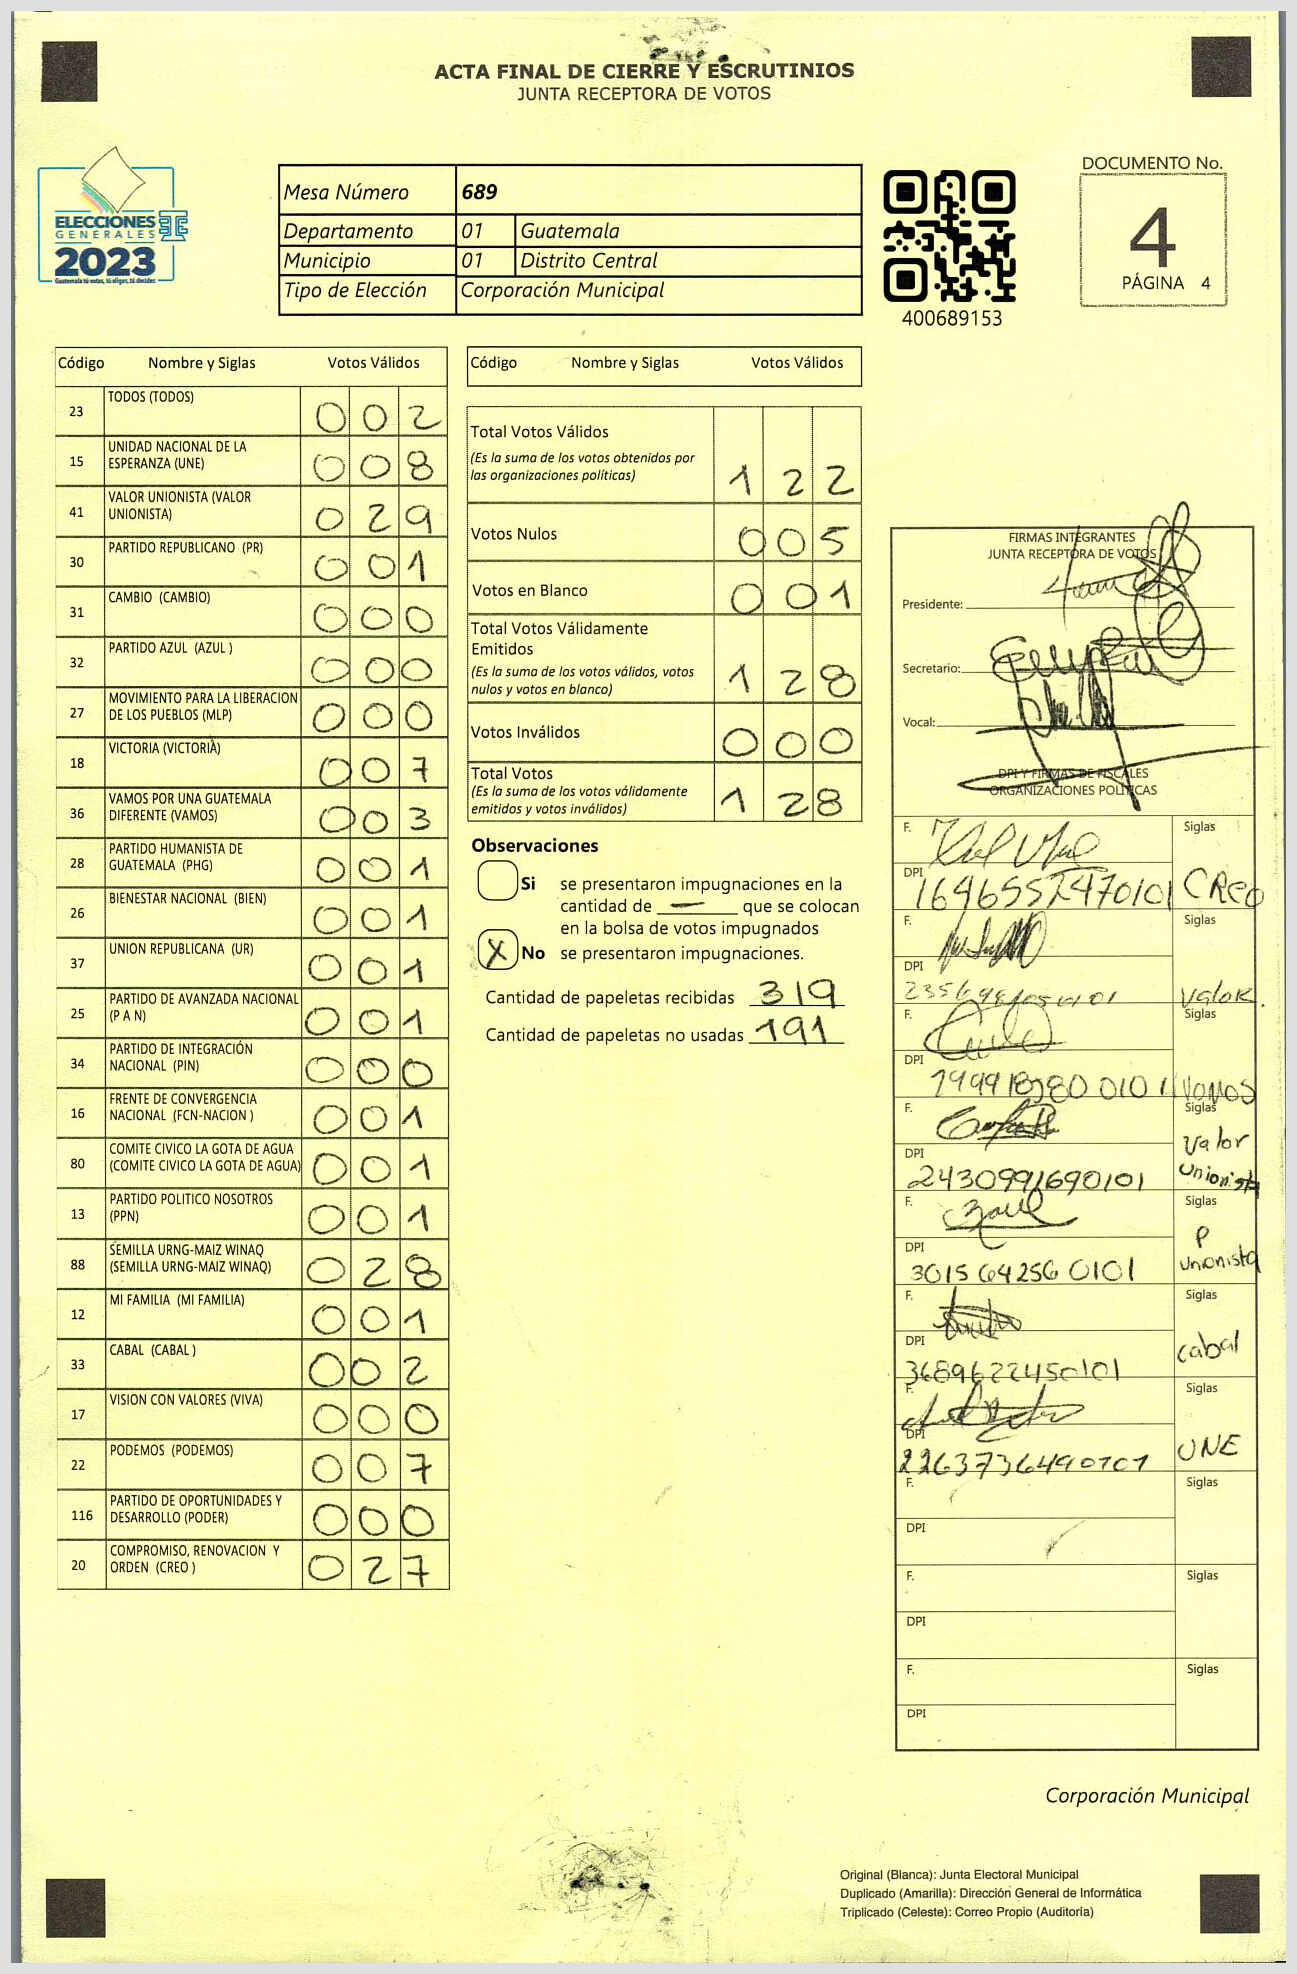 ACTA FINAL DE CIERRE Y ESCRUTINIOS
JUNTA RECEPTORA DE VOTOS
ELECCIONES
GENERALES
2023
Guatemala tú votas, tú eliges, tú decides
Mesa Número 689
Departamento 01 Guatemala
Municipio 01 Distrito Central
Tipo de Elección Corporación Municipal
400689153
DOCUMENTO No.
4
PÁGINA 4
Código Nombre y Siglas Votos Válidos
23 TODOS (TODOS) 0 0 2
15 UNIDAD NACIONAL DE LA
ESPERANZA (UNE) 0 0 8
41 VALOR UNIONISTA (VALOR
UNIONISTA) 0 2 9
30 PARTIDO REPUBLICANO (PR) 0 0 1
31 CAMBIO (CAMBIO) 0 0 0
32 PARTIDO AZUL (AZUL ) 0 0 0
27 MOVIMIENTO PARA LA LIBERACION
DE LOS PUEBLOS (MLP) 0 0 0
18 VICTORIA (VICTORIA) 0 0 7
36 VAMOS POR UNA GUATEMALA
DIFERENTE (VAMOS) 0 0 3
28 PARTIDO HUMANISTA DE
GUATEMALA (PHG) 0 0 1
26 BIENESTAR NACIONAL (BIEN) 0 0 1
37 UNION REPUBLICANA (UR) 0 0 1
25 PARTIDO DE AVANZADA NACIONAL
(P A N) 0 0 1
34 PARTIDO DE INTEGRACIÓN
NACIONAL (PIN) 0 0 0
16 FRENTE DE CONVERGENCIA
NACIONAL (FCN-NACION ) 0 0 1
80 COMITE CIVICO LA GOTA DE AGUA
(COMITE CIVICO LA GOTA DE AGUA) 0 0 1
13 PARTIDO POLITICO NOSOTROS
(PPN) 0 0 1
88 SEMILLA URNG-MAIZ WINAQ
(SEMILLA URNG-MAIZ WINAQ) 0 2 8
12 MI FAMILIA (MI FAMILIA) 0 0 1
33 CABAL (CABAL ) 0 0 2
17 VISION CON VALORES (VIVA) 0 0 0
22 PODEMOS (PODEMOS) 0 0 7
116 PARTIDO DE OPORTUNIDADES Y
DESARROLLO (PODER) 0 0 0
20 COMPROMISO, RENOVACION Y
ORDEN (CREO ) 0 2 7
Código Nombre y Siglas Votos Válidos
Total Votos Válidos
(Es la suma de los votos obtenidos por
las organizaciones políticas) 1 2 2
Votos Nulos 0 0 5
Votos en Blanco 0 0 1
Total Votos Válidamente
Emitidos
(Es la suma de los votos válidos, votos
nulos y votos en blanco) 1 2 8
Votos Inválidos 0 0 0
Total Votos
(Es la suma de los votos válidamente
emitidos y votos inválidos) 1 2 8
Observaciones
Si se presentaron impugnaciones en la
cantidad de — que se colocan
en la bolsa de votos impugnados
X No se presentaron impugnaciones.
Cantidad de papeletas recibidas 319
Cantidad de papeletas no usadas 191
FIRMAS INTEGRANTES
JUNTA RECEPTORA DE VOTOS
Presidente:
Secretario:
Vocal:
DPI Y FIRMAS DE FISCALES
ORGANIZACIONES POLÍTICAS
F. Siglas
DPI
CREO
F. Siglas
DPI
Valor.
F. Siglas
DPI
Vamos
F. Siglas
Valor
DPI Unionista
2430991690101
F. Siglas
P
DPI Unionista
3015642560101
F. Siglas
Cabal
DPI
3689622450101
F. Siglas
UNE
DPI
2263736490101
F. Siglas
DPI
F. Siglas
DPI
F. Siglas
DPI
Corporación Municipal
Original (Blanca): Junta Electoral Municipal
Duplicado (Amarilla): Dirección General de Informática
Triplicado (Celeste): Correo Propio (Auditoría)